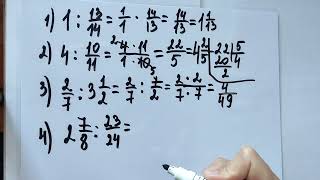 1) 1 : 13/14 = 1/1 · 14/13 = 14/13 = 1 1/13
2) 4 : 10/11 = 4 · 11 / 1 · 10 = 22/5 = 4 2/5
3) 2/7 : 3 1/2 = 2/7 : 7/2 = 2 · 2 / 7 · 7 = 4/49
4) 2 7/8 : 23/24 =